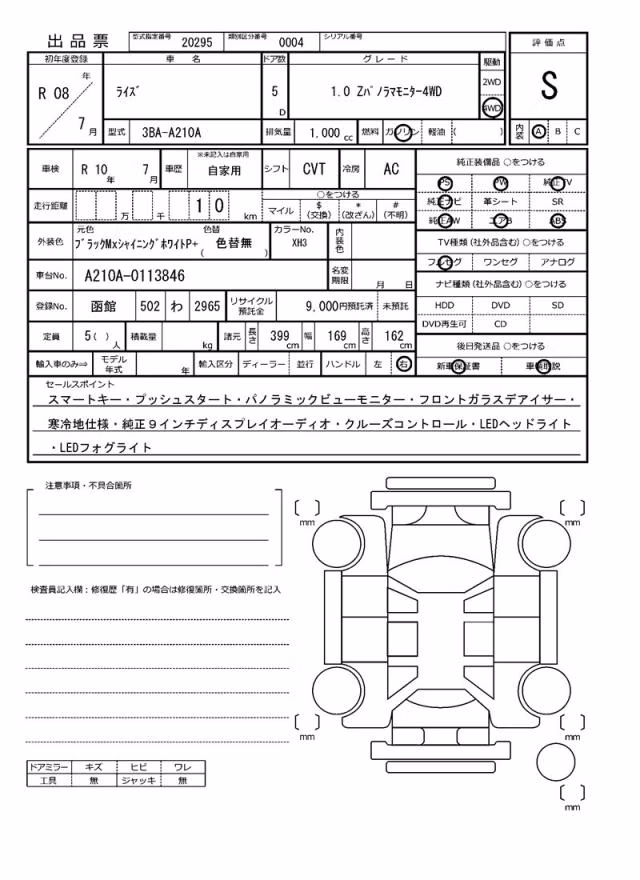 出品票 型式指定番号 20295 類別区分番号 0004 シリアル番号
初年度登録 車名 ドア数 グレード 駆動 評価点
R 08 年 7 月 ライズ 5 D 1.0 Zパノラマモニター4WD 2WD 4WD S
型式 3BA-A210A 排気量 1.000 cc 燃料 ガソリン 軽油 ( ) 内装 A B C
車検 R 10 年 7 月 車歴 ※未記入は自家用 自家用 シフト CVT 冷房 AC
純正装備品 ○をつける
PS PW 純正TV
純正ナビ 革シート SR
純正AW エアB ABS
走行距離 万 千 1 0 km ○をつける
マイル $ (交換) * (改ざん) # (不明)
外装色 元色 ブラックMxシャイニングホワイトP+ 色替 ( 色替無 ) カラーNo. XH3 内装色
TV種類 (社外品含む) ○をつける
フルセグ ワンセグ アナログ
車台No. A210A-0113846 名変期限 月 日
ナビ種類 (社外品含む) ○をつける
HDD DVD SD
DVD再生可 CD
登録No. 函館 502 わ 2965 リサイクル預託金 9,000円預託済 未預託
定員 5 ( ) 人 積載量 kg 諸元 長さ 399 cm 幅 169 cm 高さ 162 cm
後日発送品 ○をつける
新車保証書 車輌取説
輸入車のみ⇒ モデル年式 年 輸入区分 ディーラー 並行 ハンドル 左 右
セールスポイント
スマートキー・プッシュスタート・パノラミックビューモニター・フロントガラスデアイサー・
寒冷地仕様・純正９インチディスプレイオーディオ・クルーズコントロール・LEDヘッドライト
・LEDフォグライト
注意事項・不具合箇所
mm mm
検査員記入欄：修復歴「有」の場合は修復箇所・交換箇所を記入
mm mm
ドアミラー キズ ヒビ ワレ
工具 無 ジャッキ 無
mm